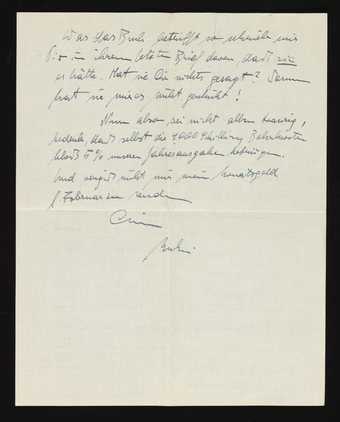 Was das Buch betrifft so schrieb mir
Pio in ihrem letzten Brief davon dass sie
es hätte. Hat sie Dir nichts gesagt? Darum
hat sie mir es nicht geschickt!
Nun also sei nicht allzu traurig,
bedenke, dass selbst die 7000 Schilling Bahnkosten
bloss 5% unserer Jahresausgaben betragen.
Und vergiss nicht mir mein Monatsgeld
f Februar zu senden